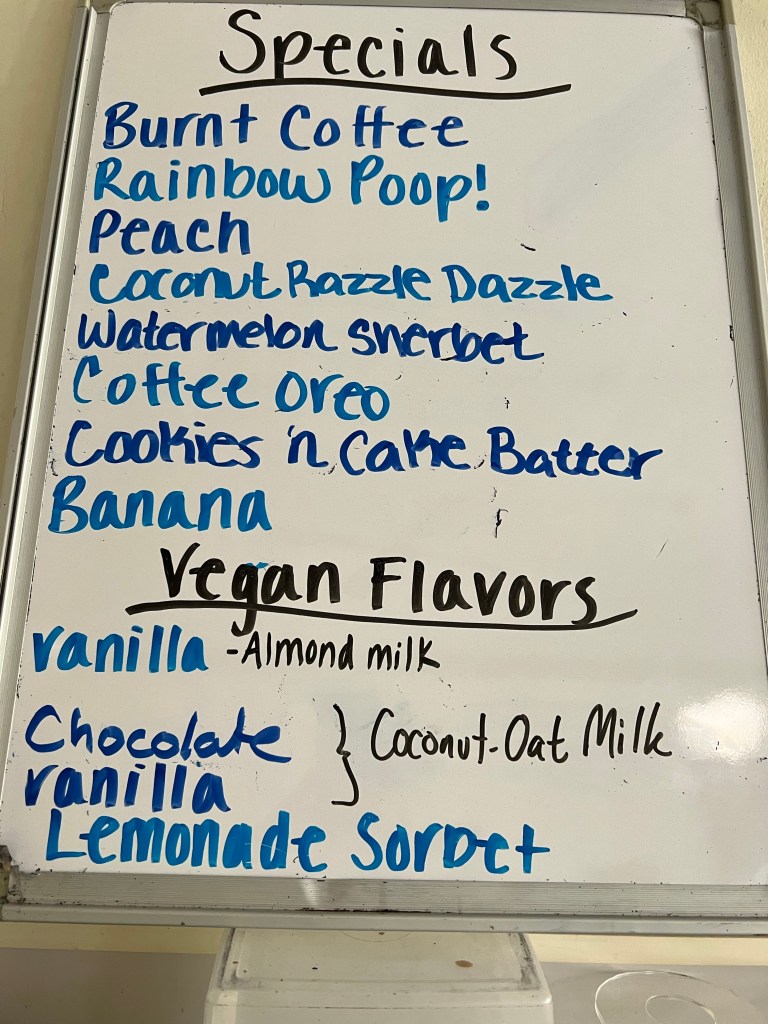 Specials
Burnt Coffee
Rainbow Poop!
Peach
Coconut Razzle Dazzle
Watermelon Sherbet
Coffee Oreo
Cookies 'n Cake Batter
Banana
Vegan Flavors
vanilla -Almond milk
Chocolate } Coconut-Oat Milk
vanilla
Lemonade Sorbet